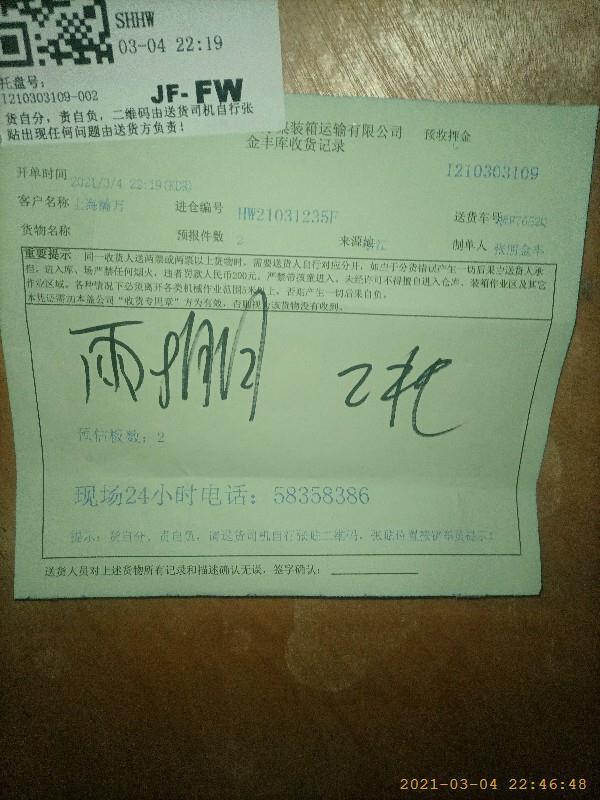 SHHW
03-04 22:19
托盘号:
1210303109-002
JF-FW
货自分，责自负，二维码由送货司机自行张
贴出现任何问题由送货方负责！
装箱运输有限公司
预收押金
金丰库收货记录
开单时间
2021/3/4 22:19(KDR)
1210303109
客户名称
进仓编号
HW21031235F
送货车号
货物名称
预报件数
2
来源地
制单人
重要提示
同一收货人送两票或两票以上货物时，需要送货人自行对应分开，如由于分货错误产生一切后果由送货人承
担，进入库、场严禁任何烟火，违者罚款人民币200元，严禁带孩童进入，未经许可不得擅自进入仓库、装箱作业区及其它
作业区域。各种情况下必须离开各类机械作业范围5米以上，否则产生一切后果自负。
本凭证需加本盖公司“收货专用章”方为有效，否则视为该货物没有收到。
雨棚
2托
预估板数：2
现场24小时电话：58358386
提示：货自分，责自负，请送货司机自行张贴二维码，张贴位置按铲车员提示！
送货人员对上述货物所有记录和描述确认无误，签字确认：
2021-03-04 22:46:48